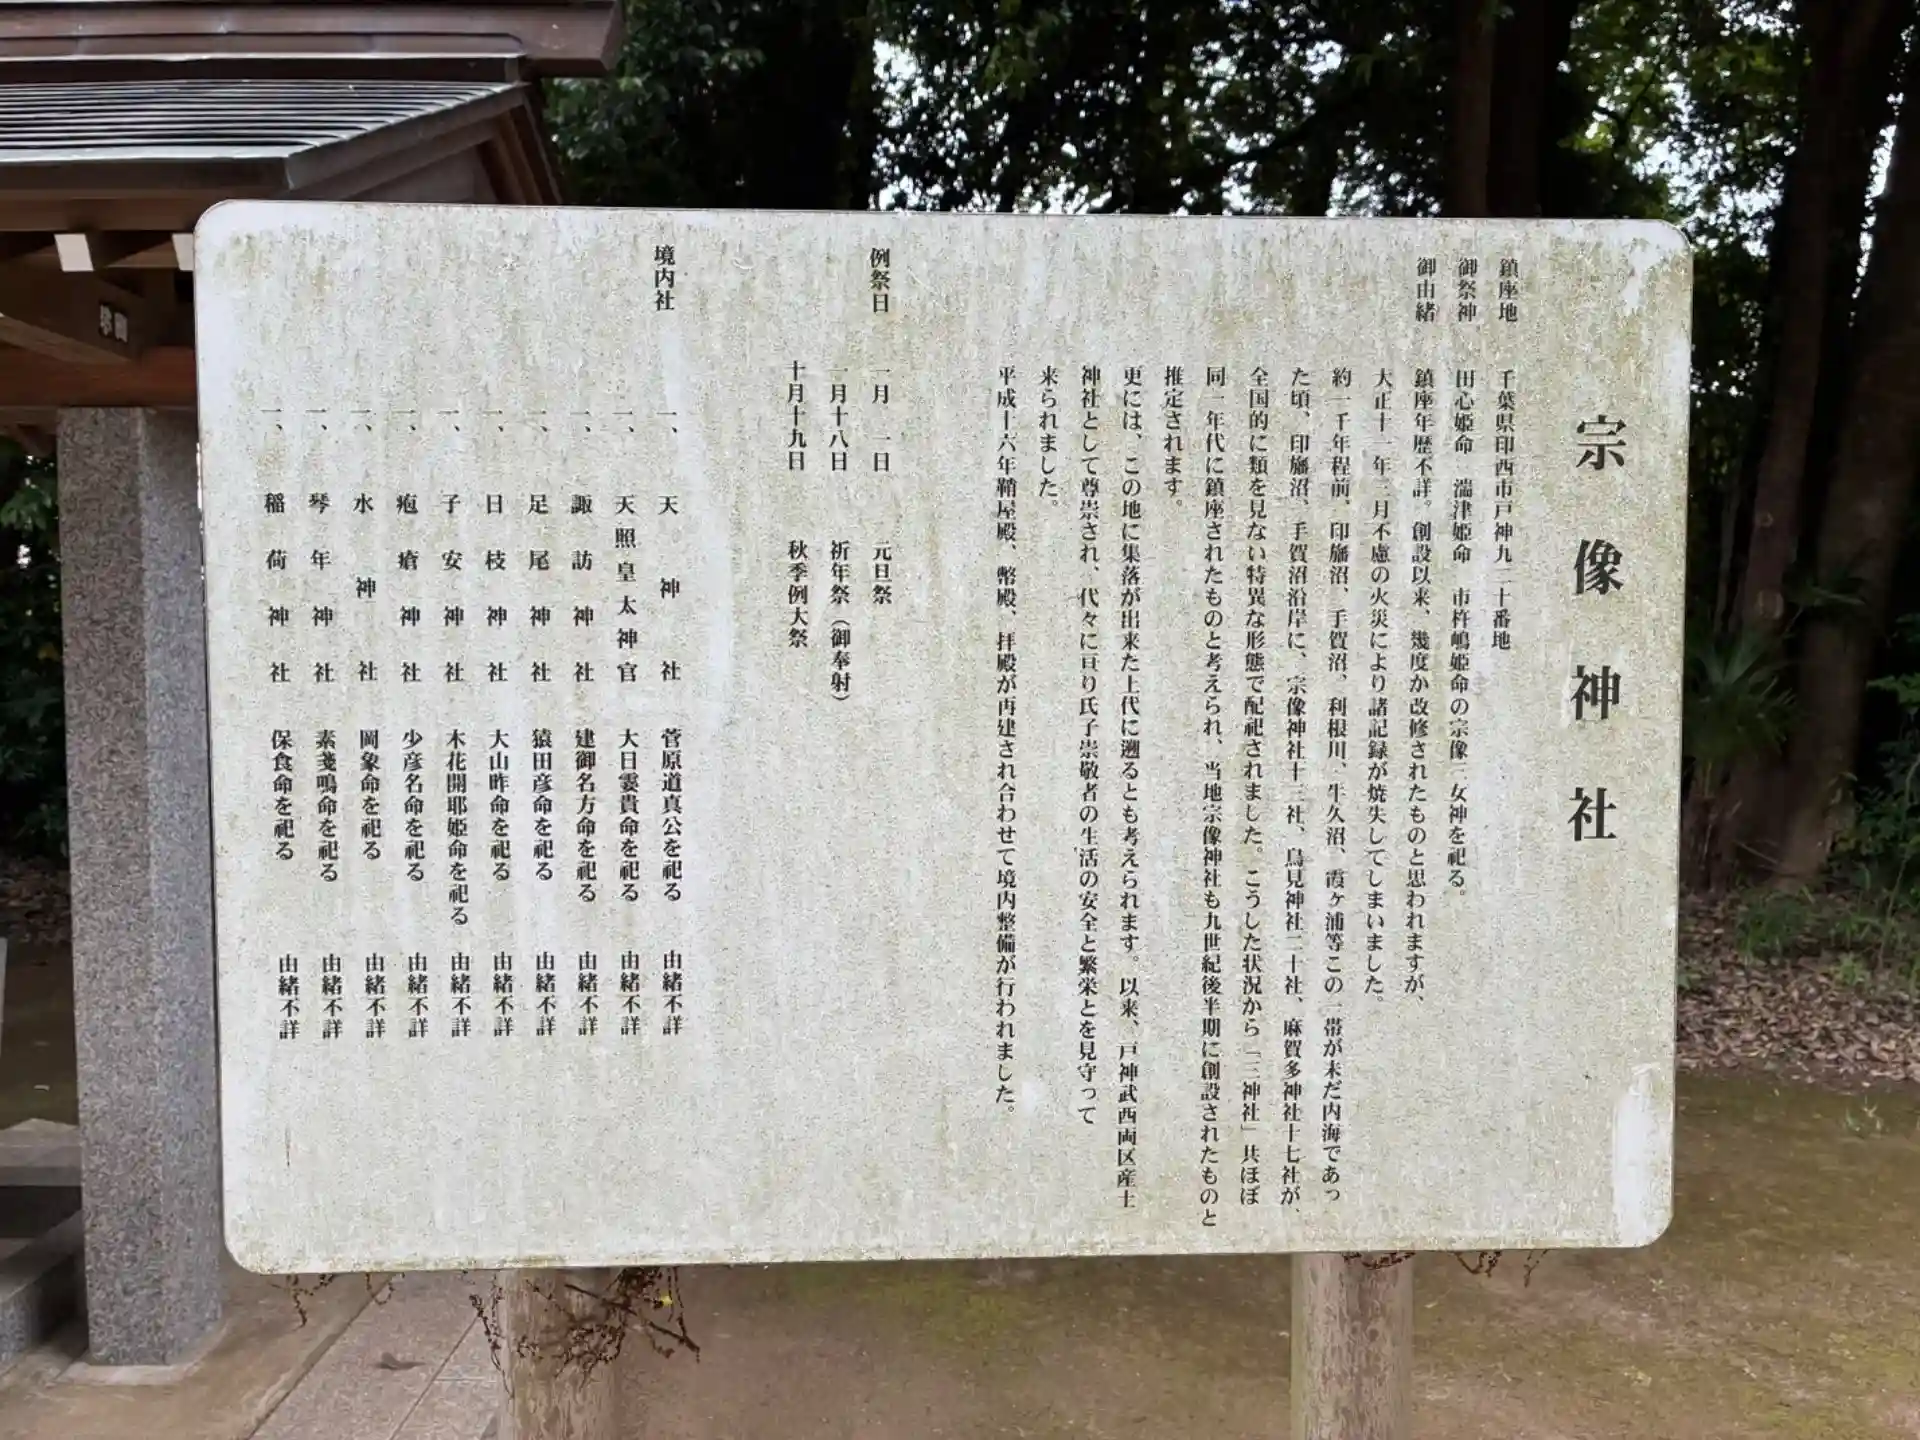 宗像神社
鎮座地　千葉県印西市戸神九二十番地
御祭神　田心姫命　湍津姫命　市杵嶋姫命の宗像三女神を祀る。
御由緒　鎮座年歴不詳。創設以来、幾度か改修されたものと思われますが、
大正十一年三月不慮の火災により諸記録が焼失してしまいました。
約一千年程前、印旛沼、手賀沼、利根川、牛久沼、霞ヶ浦等この一帯が未だ内海であっ
た頃、印旛沼、手賀沼沿岸に、宗像神社十三社、鳥見神社二十社、麻賀多神社十七社が、
全国的に類を見ない特異な形態で配祀されました。こうした状況から「三神社」共ほぼ
同一年代に鎮座されたものと考えられ、当地宗像神社も九世紀後半期に創設されたものと
推定されます。
更には、この地に集落が出来た上代に遡るとも考えられます。以来、戸神武西両区産土
神社として尊崇され、代々に亘り氏子崇敬者の生活の安全と繁栄とを見守って
来られました。
平成十六年鞘屋殿、幣殿、拝殿が再建され合わせて境内整備が行われました。
例祭日　一月　一日　元旦祭
一月十八日　祈年祭（御奉射）
十月十九日　秋季例大祭
境内社
一、天神社　菅原道真公を祀る　由緒不詳
一、天照皇太神官　大日孁貴命を祀る　由緒不詳
一、諏訪神社　建御名方命を祀る　由緒不詳
一、足尾神社　猿田彦命を祀る　由緒不詳
一、日枝神社　大山昨命を祀る　由緒不詳
一、子安神社　木花開耶姫命を祀る　由緒不詳
一、疱瘡神社　少彦名命を祀る　由緒不詳
一、水神社　岡象命を祀る　由緒不詳
一、琴年神社　素戔鳴命を祀る　由緒不詳
一、稲荷神社　保食命を祀る　由緒不詳